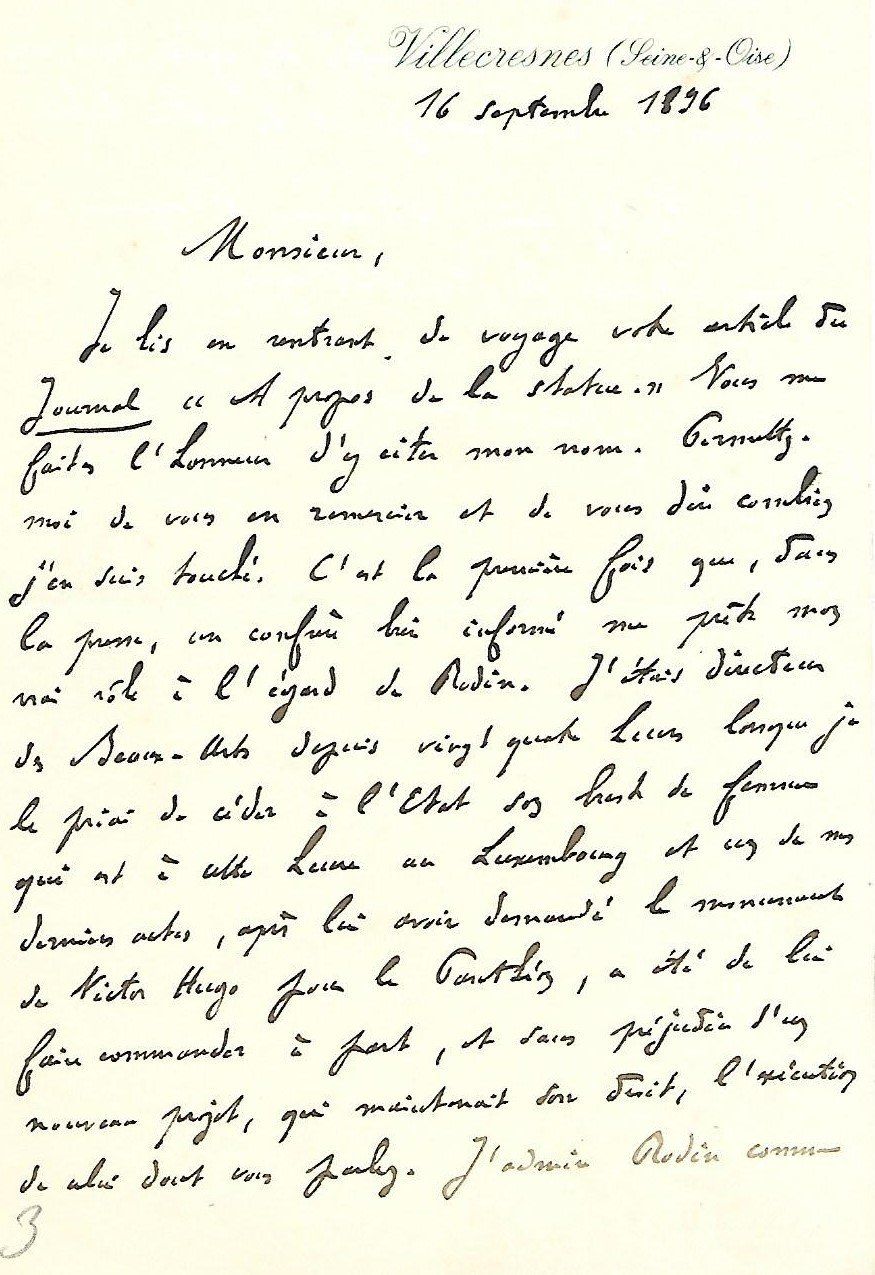 Villecresnes (Seine-&-Oise)
16 septembre 1896
Monsieur,
Je lis en rentrant de voyage votre article du
Journal « A propos de la statue. » Vous me
faites l'honneur d'y citer mon nom. Permettez-
moi de vous en remercier et de vous dire combien
j'en suis touché. C'est la première fois que, dans
la presse, un confrère bien informé me prête mon
vrai rôle à l'égard de Rodin. J'étais directeur
des Beaux-Arts depuis vingt quatre heures lorsque je
le priai de céder à l'Etat son buste de femme
qui est à cette heure au Luxembourg et un de mes
derniers actes, après lui avoir demandé le monument
de Victor Hugo pour le Panthéon, a été de lui
faire commander à part, et sans préjudice d'un
nouveau projet, qui maintenait son droit, l'exécution
de celui dont vous parlez. J'admire Rodin comme
3